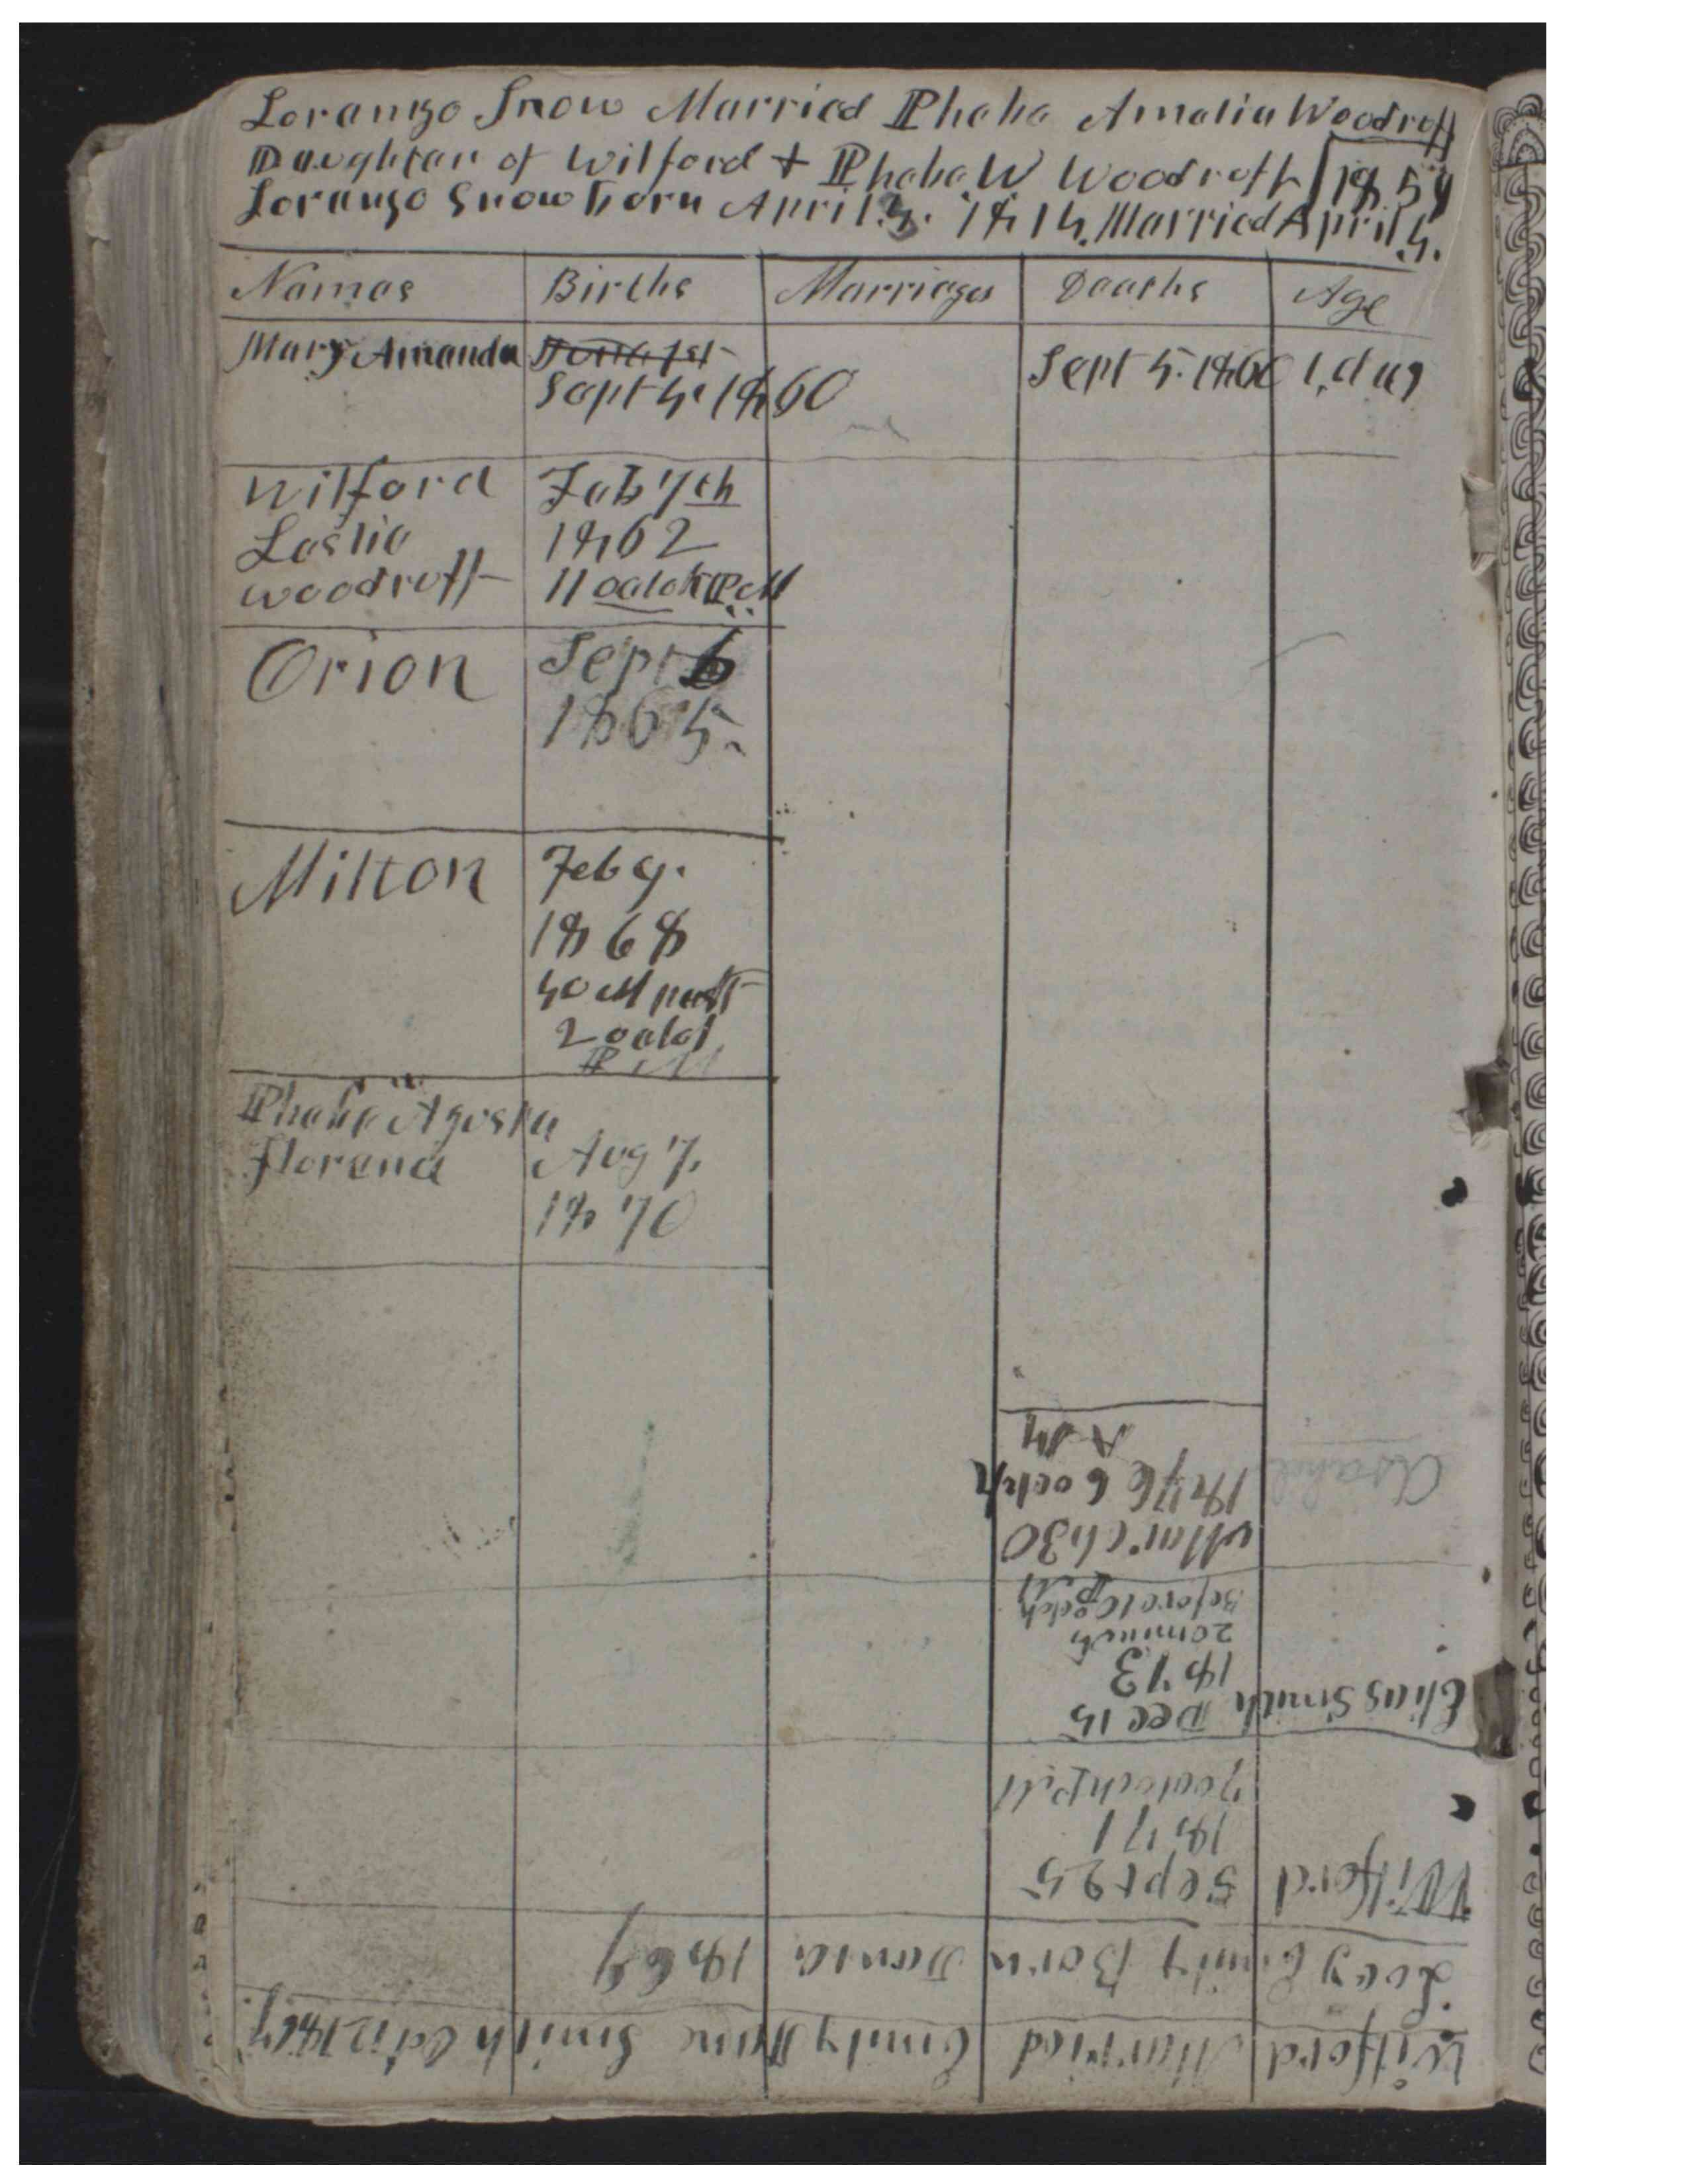 Loranzo Snow Married Phebe Amalia Woodroff
Daughter of Wilford + Phebe W Woodroff 1859
Loranzo Snow Born April 3. 1814. Married April 4.
Names Births Marriages Deaths Age
Mary Amanda Sept 4. 1860 Sept 5. 1860 1. day
Wilford Feb 7th
Leslie 1862
Woodroff 11 oclok P.M
Orion Sept 6
1865.
Milton Feb 9.
1868
40 M past
2 oclo
P.M
Phebe Agusta
Florence Aug 7.
1870
Wilford Married Emily Jane Smith Oct 12 1867
Lucy Emily Born 1869
Wilford Sept 25
1871
7 oclock P.M
Elias Smith Dec 15
1873
20 minuts
Before 10 oclok
P M
March 30
Asahel 1876 6 oclock
A M